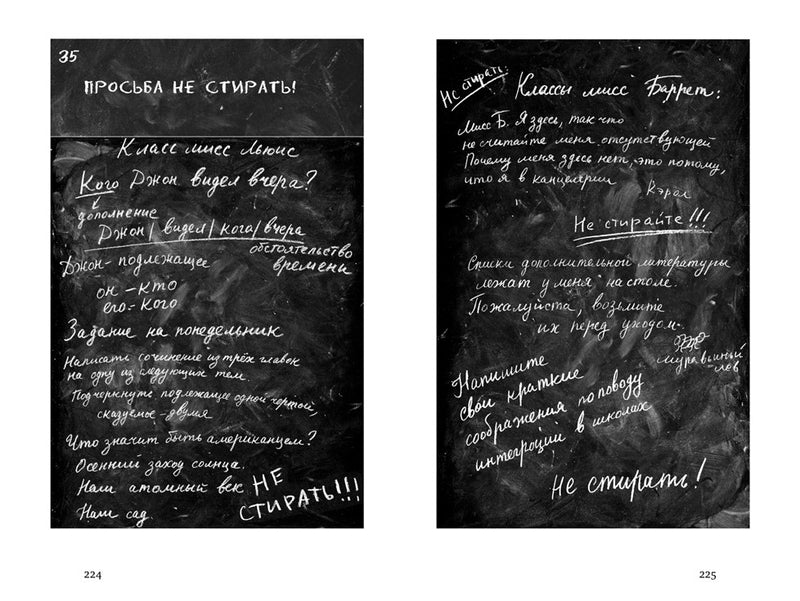 35
ПРОСЬБА НЕ СТИРАТЬ!
Класс мисс Льюис
Кого Джон видел вчера?
дополнение
Джон / видел / кого / вчера
обстоятельство
времени
Джон - подлежащее
он - кто
его - кого
Задание на понедельник
Написать сочинение из трёх главок
на одну из следующих тем.
Подчеркнуть подлежащее одной чертой,
сказуемое - двумя
Что значит быть американцем?
Осенний заход солнца.
Наш атомный век
Наш сад.
НЕ
СТИРАТЬ!!!
224
Не стирать!
Классы мисс Баррет:
Мисс Б. Я здесь, так что
не считайте меня отсутствующей
Почему меня здесь нет, это потому,
что я в канцелярии
Кэрол
Не стирайте!!!
Списки дополнительной литературы
лежат у меня на столе.
Пожалуйста, возьмите
их перед уходом.
муравьиный
лев
Напишите
свои краткие
соображения по поводу
интеграции в школах
Не стирать!
225